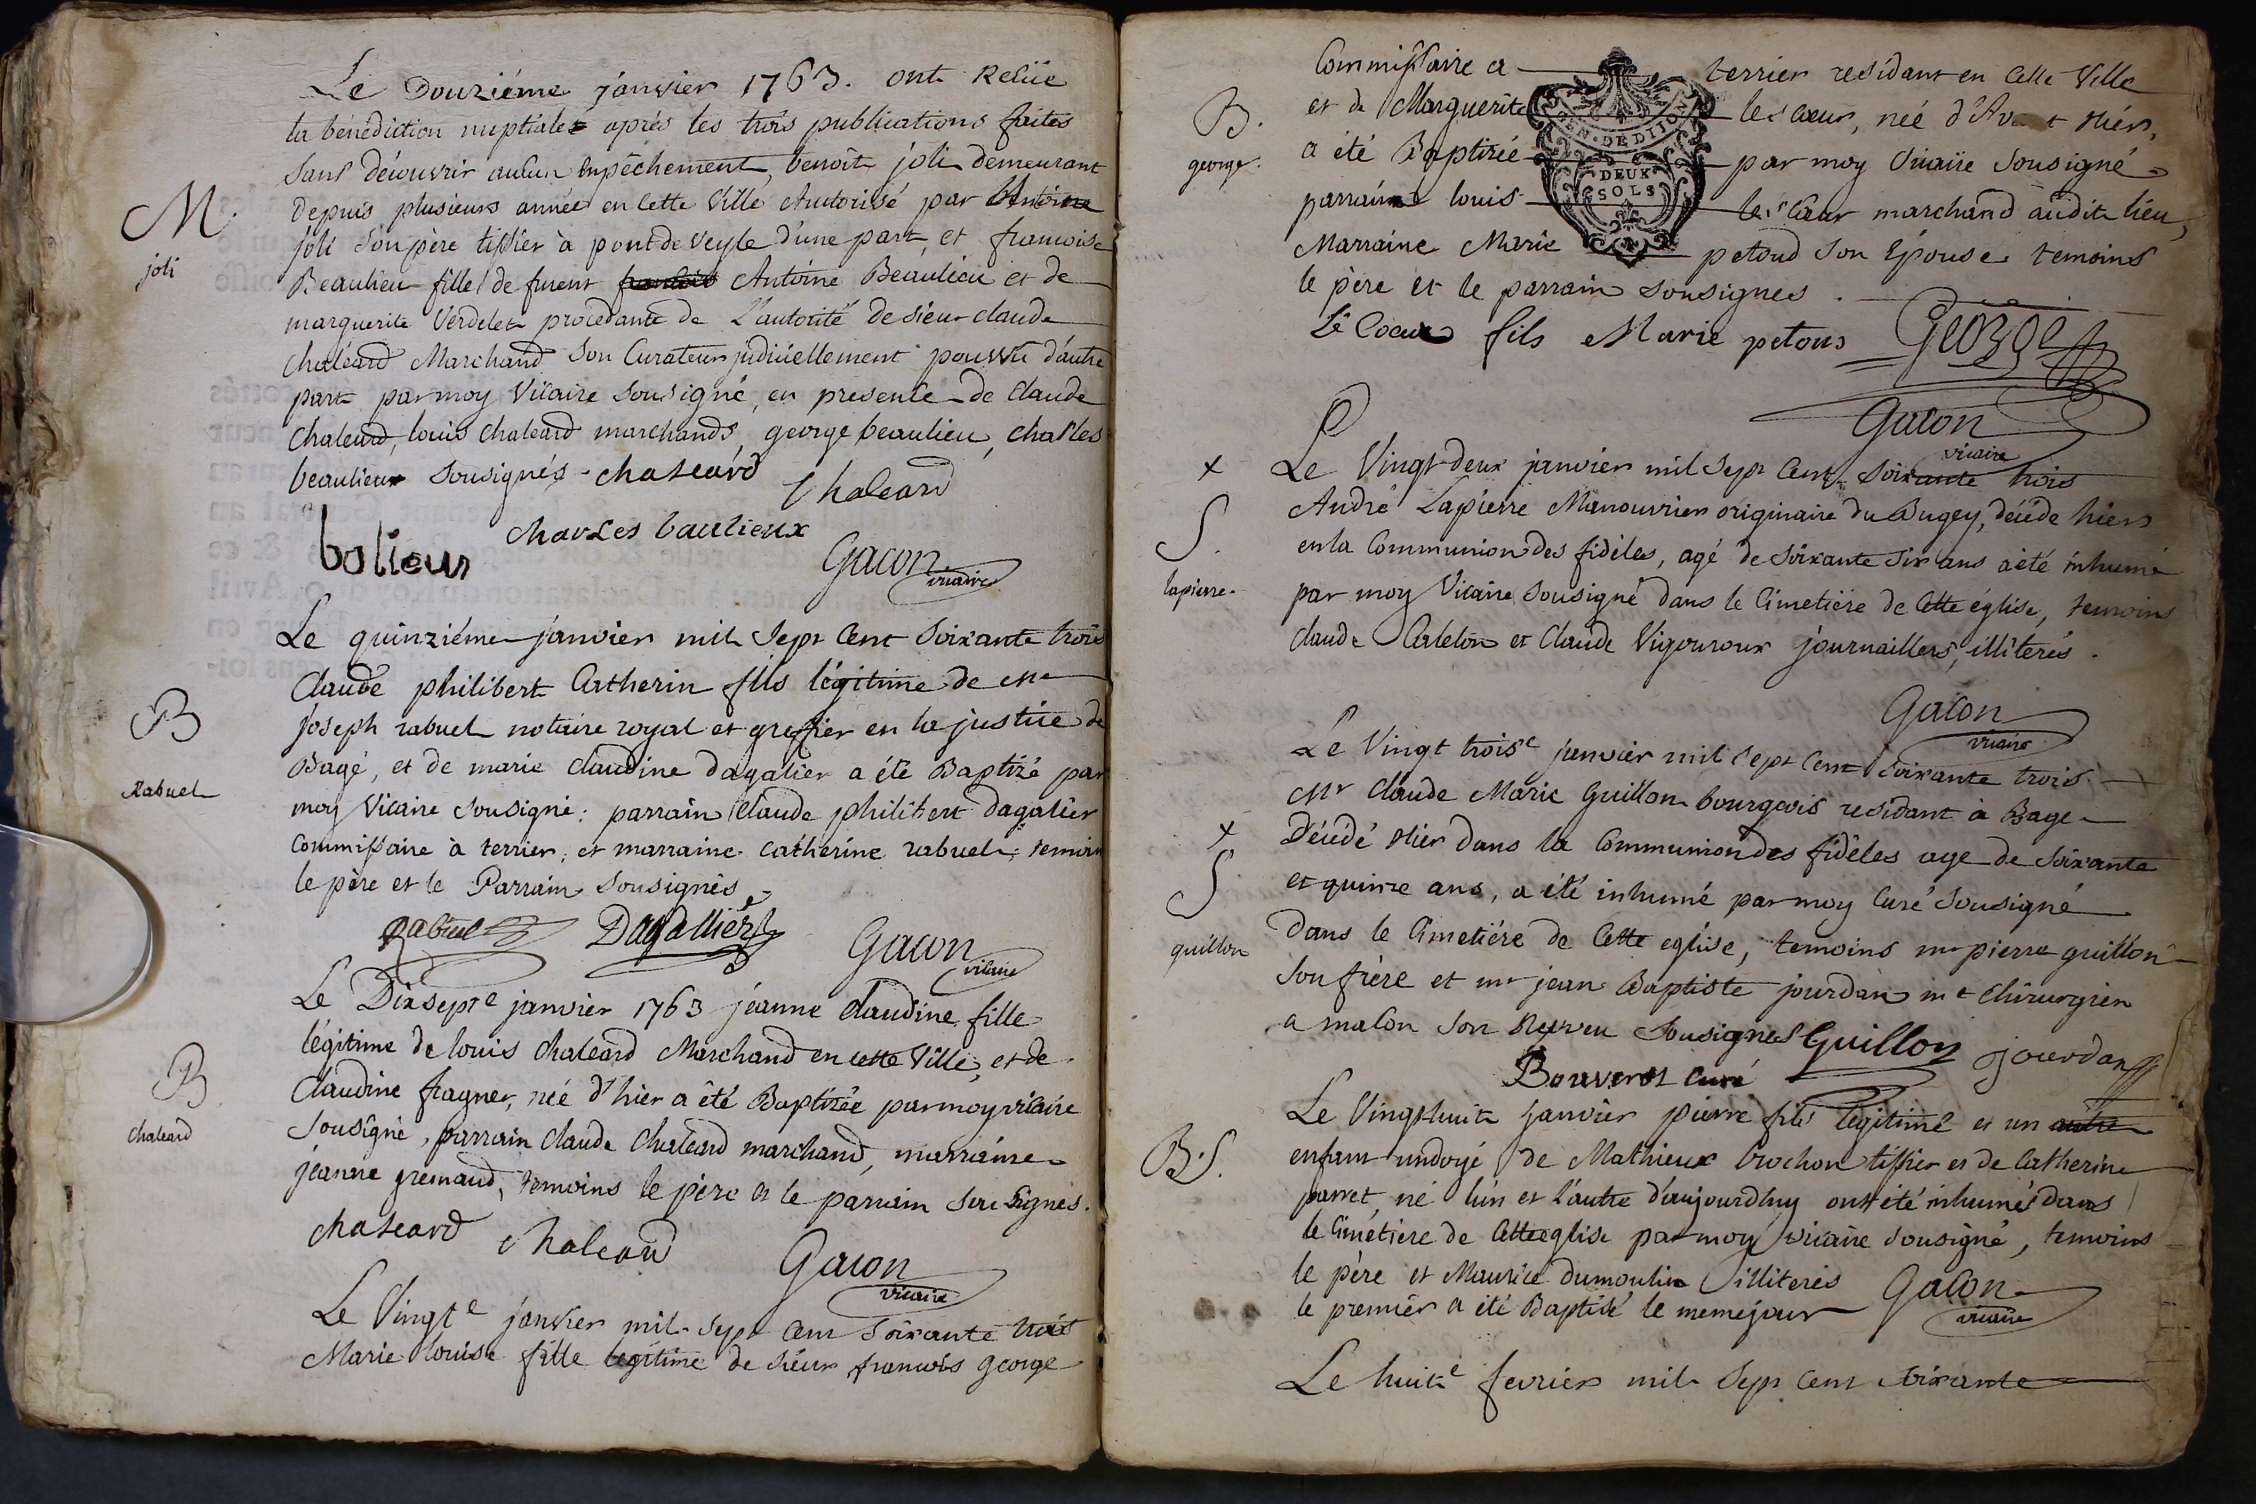 Le Douziéme janvier 1763. ont Reçüe
la bénédiction nuptiale aprés les trois publications faites
sans découvrir aucun empêchement, benoit joli demeurant
M.
depuis plusieurs année en cette Ville Authorisé par Antoine
joli
joli son père tissier à pont de veyle d'une part, et francoise
Beaulieu fille de furent Antoine Beaulieu et de
marguerite Verdelet procedante de L'autorité de sieur claude
chaleard Marchand son Curateur judiciellement pourvu d'autre
part par moy Vicaire sousigné, en presence de claude
Chaleard, louis chaleard marchands, george beaulieu, charles
beaulieux sousignés - chaleard
chaleard
charles baulieux
bolieux
Gacon
vicaire
Le quinziéme janvier mil sept cent soixante trois
Claude philibert Catherin fils légitime de me
joseph rabuel notaire royal et greffier en la justice de
B
Bagé, et de marie claudine dagalier a été Baptizé par
Rabuel
moy Vicaire sousigné: parrain Claude philibert dagalier
Commissaire à terrier, et marraine catherine rabuel; temoin
le père et le Parrain sousignés
Rabuel Dagallier Gacon
vicaire
Le Dixsepte janvier 1763 jéanne claudine fille
légitime de louis chaleard Marchand en cette Ville, et de
B
Claudine fragner, née d'hier a été Baptizée par moy vicaire
chaleard
Sousigné, parrain claude chaleard marchand, marraine
jeanne gremaud, temoins le père et le parrain sousignés.
chaleard chaleard Gacon
vicaire
Le Vingte janvier mil sept cent soixante trois
Marie louise fille legitime de sieur francois george
Commissaire a terrier residant en Cette Ville
B.
et de Marguerite lecoeur, née d'Avant hier,
GEN. DE DIJON
george.
a été Baptizée par moy Vicaire Sousigné
DEUX
SOLS
parrain louis lecoeur marchand audit lieu,
Marraine Marie petoud son Epouse temoins
le père et le parrain sousignes.
Le Coeur fils Marie petous George
Gacon
vicaire
+
Le Vingt deux janvier mil sept cent soixante trois
André Lapierre Manouvrier originaire du Bugey, décédé hier
S.
en la Communion des fidèles, agé de soixante six ans a été inhumé
lapierre.
par moy Vicaire sousigné dans le Cimetiére de Cette église, temoins
claude Catelon et Claude Vigouroux journaillers, illiterés.
Gacon
vicaire
Le Vingt troise janvier mil sept cent soixante trois.
Mr Claude Marie Guillon bourgeois residant à Bage
+
Décédé Hier dans la Communion des fidéles agé de soixante
S
et quinze ans, a été inhumé par moy Curé Sousigné
guillon
Dans le Cimetiére de Cette eglise, temoins mr pierre guillon
son frère et mr jean Baptiste jourdan mt chirurgien
a macon son Neveu Sousignes Guillon jourdan
Bouverot curé
Le Vingthuit janvier pierre fils legitime et un autre
B.S.
enfant undoyé de Mathieux brochon tissier et de Catherine
parret, né lun et l'autre d'aujourdhuy ont été inhumés dans
le Cimétiere de Cette eglise par moy vicaire sousigné, temoins
le père et Maurice dumoulin illiterés Gacon
vicaire
le premiér a été Baptisé le meme jour
Le huite fevrier mil Sept cent soixante